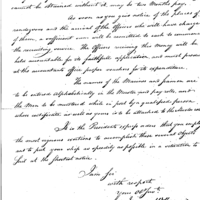 cannot be obtained without it, may be two Months pay.
As soon as you give notice of the places of
rendezvous and the arrival of the Officers who will have charge
of them, a sufficient sum will be remitted to each to commence
the recruiting service. The Officers receiving this Money will be
held accountable for its faithful application and must procure
at the accountant office proper vouchers for its expenditure.
The names of the Marines and Seamen are
to be entered alphabetically in the Muster and pay rolls, and
the Men to be mustered which is put by a qualified person
whose certificate as well as yours is to be attached to the Muster roll
It is the Presidents express orders that you employ
the most vigorous exertions to accomplish these several Objects
and to put your ship as speedily as possible in a situation to
Sail at the shortest notice.
I am Sir
with respect
your Obt Servt